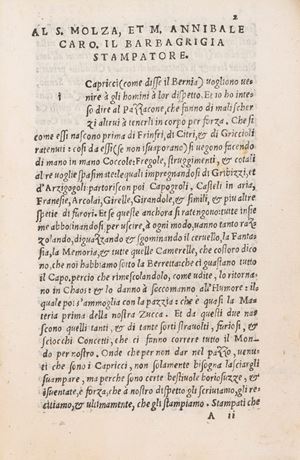 2
AL S. MOLZA, ET M. ANNIBALE
CARO. IL BARBAGRIGIA
STAMPATORE.
I Capricci (come disse il Bernia) uogliono ue-
nire à gli homini à lor dispetto. Et io ho inte-
so dire al Pazzacone, che fanno di malischer
zi altrui à tenerli in corpo per forza. Che si
come essi nascono prima di Frinfri, di Citri, & di Griccioli
ratenuti: cosi da essi (se non isuaporano) si uengono facendo
di mano in mano Coccole: Fregole, struggimenti, & cotali
altre uoglie spasimate: le quali impregnandosi di Gribizzi, et
d'Arzigogoli partoriscon poi Capogroli, Casteli in aria,
Franesie, Arcolai, Girelle, Girandole, & simili, et piu altre
spetie di furori. Et se queste anchora si ratengono: tutte infie
me abboinandosi per uscire, à ogni modo, uanno tanto raz
zolando, diguazzando & sgominando il ceruello, la Fanta-
sia, la Memoria, & tutte quelle Camerelle, che costoro dico
no, che noi habbiamo sotto la Berretta: che ci guastano tutto
il Capo, percio che rimescolandolo, come udite, lo ritorna-
no in Chaos: & lo danno à soccomanno all'Humore: il
quale poi s'ammoglia con la pazzia: che è quasi la Ma
teria prima della nostra Zucca. Et da questi due na-
scono quelli tanti, & di tante sorti strauolti, furiosi, &
sciocchi Concetti, che ci fanno correre tutto il Mon-
do per nostro. Onde che per non dar nel pazzo, uenu-
ti che sono i Capricci, non solamente bisogna lasciargli
suampare, ma perche sono certe bestiuole boriosuzze, &
isuentate, è forza, che à nostro dispetto gli scriuiamo, gli re-
citiamo, & ultimamente, che gli stampiamo. Stampati che
A ii